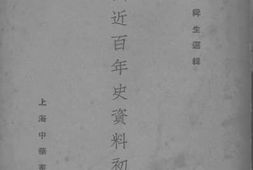 舜生選輯
近百年史資料初
上海中華書